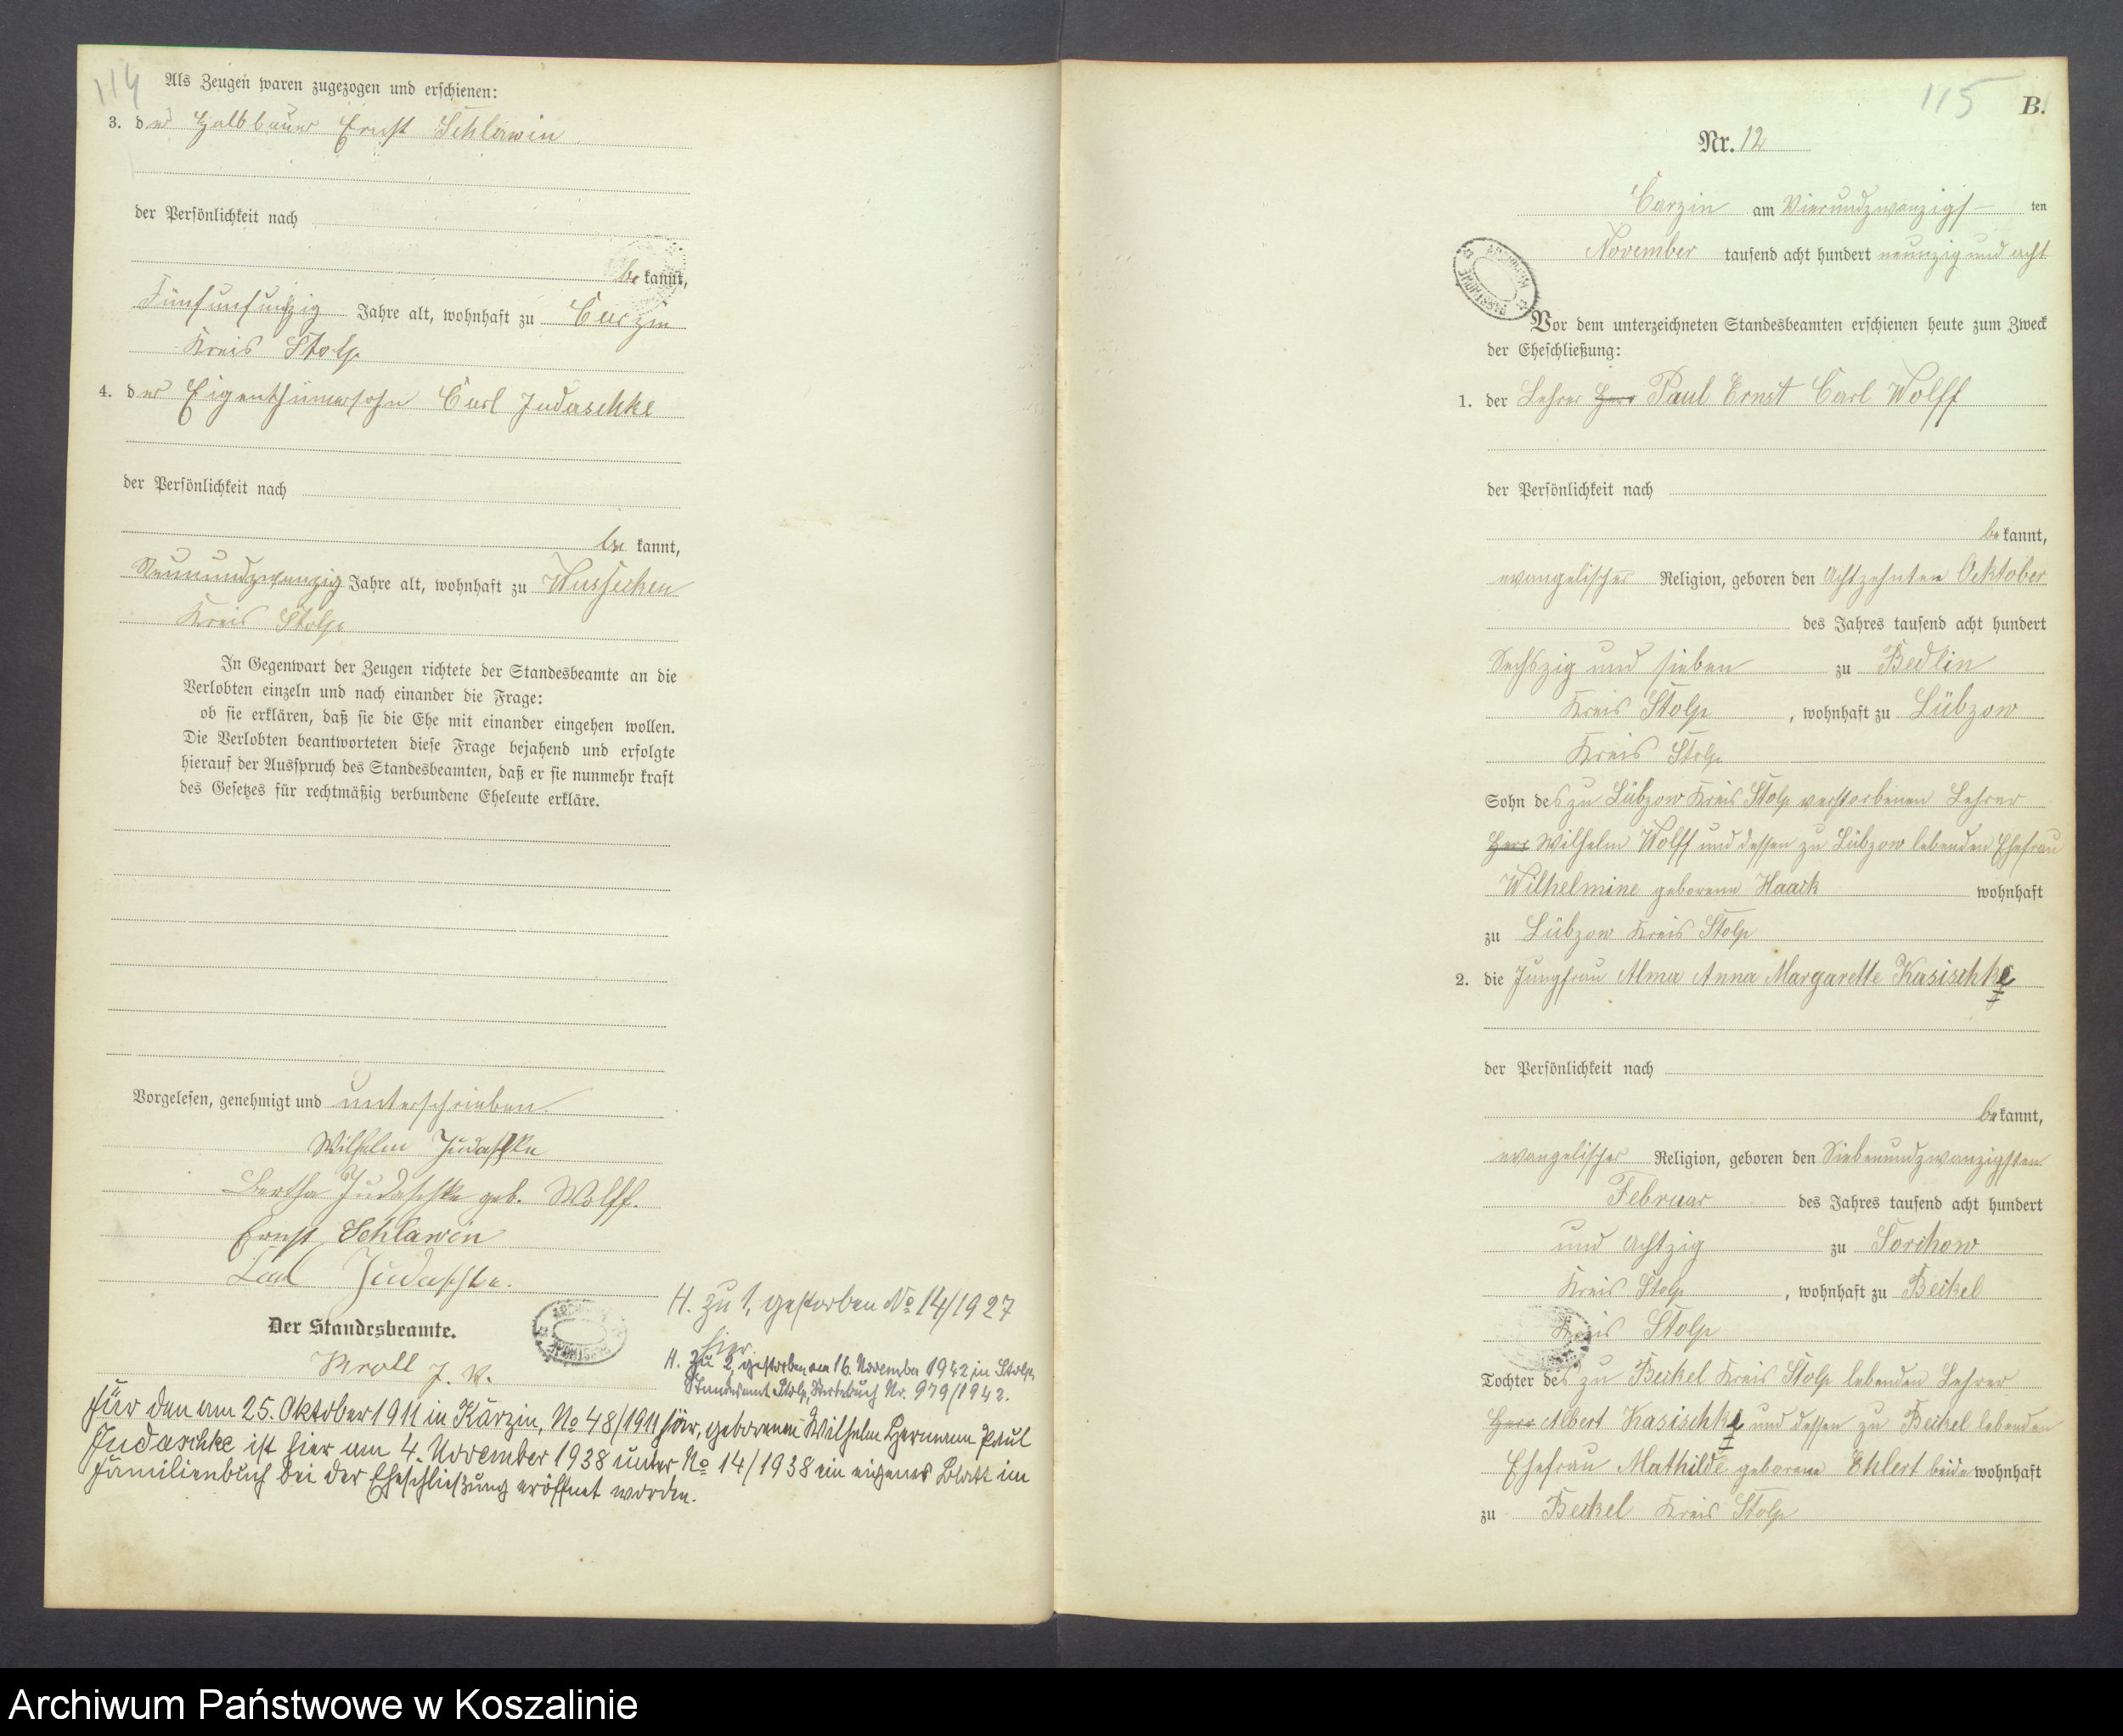 114
Als Zeugen waren zugezogen und erschienen:
3. der Halbbauer Ernst Schlawin
der Persönlichkeit nach
bekannt,
Fünfunfunfzig Jahre alt, wohnhaft zu Carzin
Kreis Stolp
4. der Eigenthümersohn Carl Judaschke
der Persönlichkeit nach
be kannt,
Neunundzwanzig Jahre alt, wohnhaft zu Wussecken
Kreis Stolp
In Gegenwart der Zeugen richtete der Standesbeamte an die
Verlobten einzeln und nach einander die Frage:
ob sie erklären, daß sie die Ehe mit einander eingehen wollen.
Die Verlobten beantworteten diese Frage bejahend und erfolgte
hierauf der Ausspruch des Standesbeamten, daß er sie nunmehr kraft
des Gesetzes für rechtmäßig verbundene Eheleute erkläre.
Vorgelesen, genehmigt und unterschrieben.
Wilhelm Judaschke
Bertha Judaschke geb. Wolff.
Ernst Schlawin
Carl Judaschke.
Der Standesbeamte.
Kroll J. V.
H. zu 1, gestorben No 14/1927
hier
H. zu 2, gestorben am 16. November 1942 in Stolp,
Standesamt Stolp, Sterbebuch Nr. 979/1942.
Für den am 25. Oktober 1911 in Karzin, No 48/1911 hier, geborenen Wilhelm Hermann Paul
Judaschke ist hier am 4. November 1938 unter No 14/1938 ein eigenes Blatt im
Familienbuch bei der Eheschließung eröffnet worden.
115
B.
Nr. 12
Carzin am Vierundzwanzigsten
November tausend acht hundert neunzig und acht
Vor dem unterzeichneten Standesbeamten erschienen heute zum Zweck
der Eheschließung:
1. der Lehrer Herr Paul Ernst Carl Wolff
der Persönlichkeit nach
bekannt,
evangelischer Religion, geboren den Achtzehnten Ocktober
des Jahres tausend acht hundert
Sechszig und sieben zu Bedlin
Kreis Stolp, wohnhaft zu Lübzow
Kreis Stolp
Sohn des zu Lübzow Kreis Stolp verstorbenen Lehrer
Herr Wilhelm Wolff und dessen zu Lübzow lebenden Ehefrau
Wilhelmine geborene Haack wohnhaft
zu Lübzow Kreis Stolp
2. die Jungfrau Alma Anna Margarette Kasischke
der Persönlichkeit nach
bekannt,
evangelischer Religion, geboren den Siebenundzwanzigsten
Februar des Jahres tausend acht hundert
und Achtzig zu Sorchow
Kreis Stolp, wohnhaft zu Beckel
Kreis Stolp
Tochter des zu Beckel Kreis Stolp lebenden Lehrer
Herr Albert Kasischke und dessen zu Beckel lebenden
Ehefrau Mathilde geborene Ehlert beide wohnhaft
zu Beckel Kreis Stolp
Archiwum Państwowe w Koszalinie